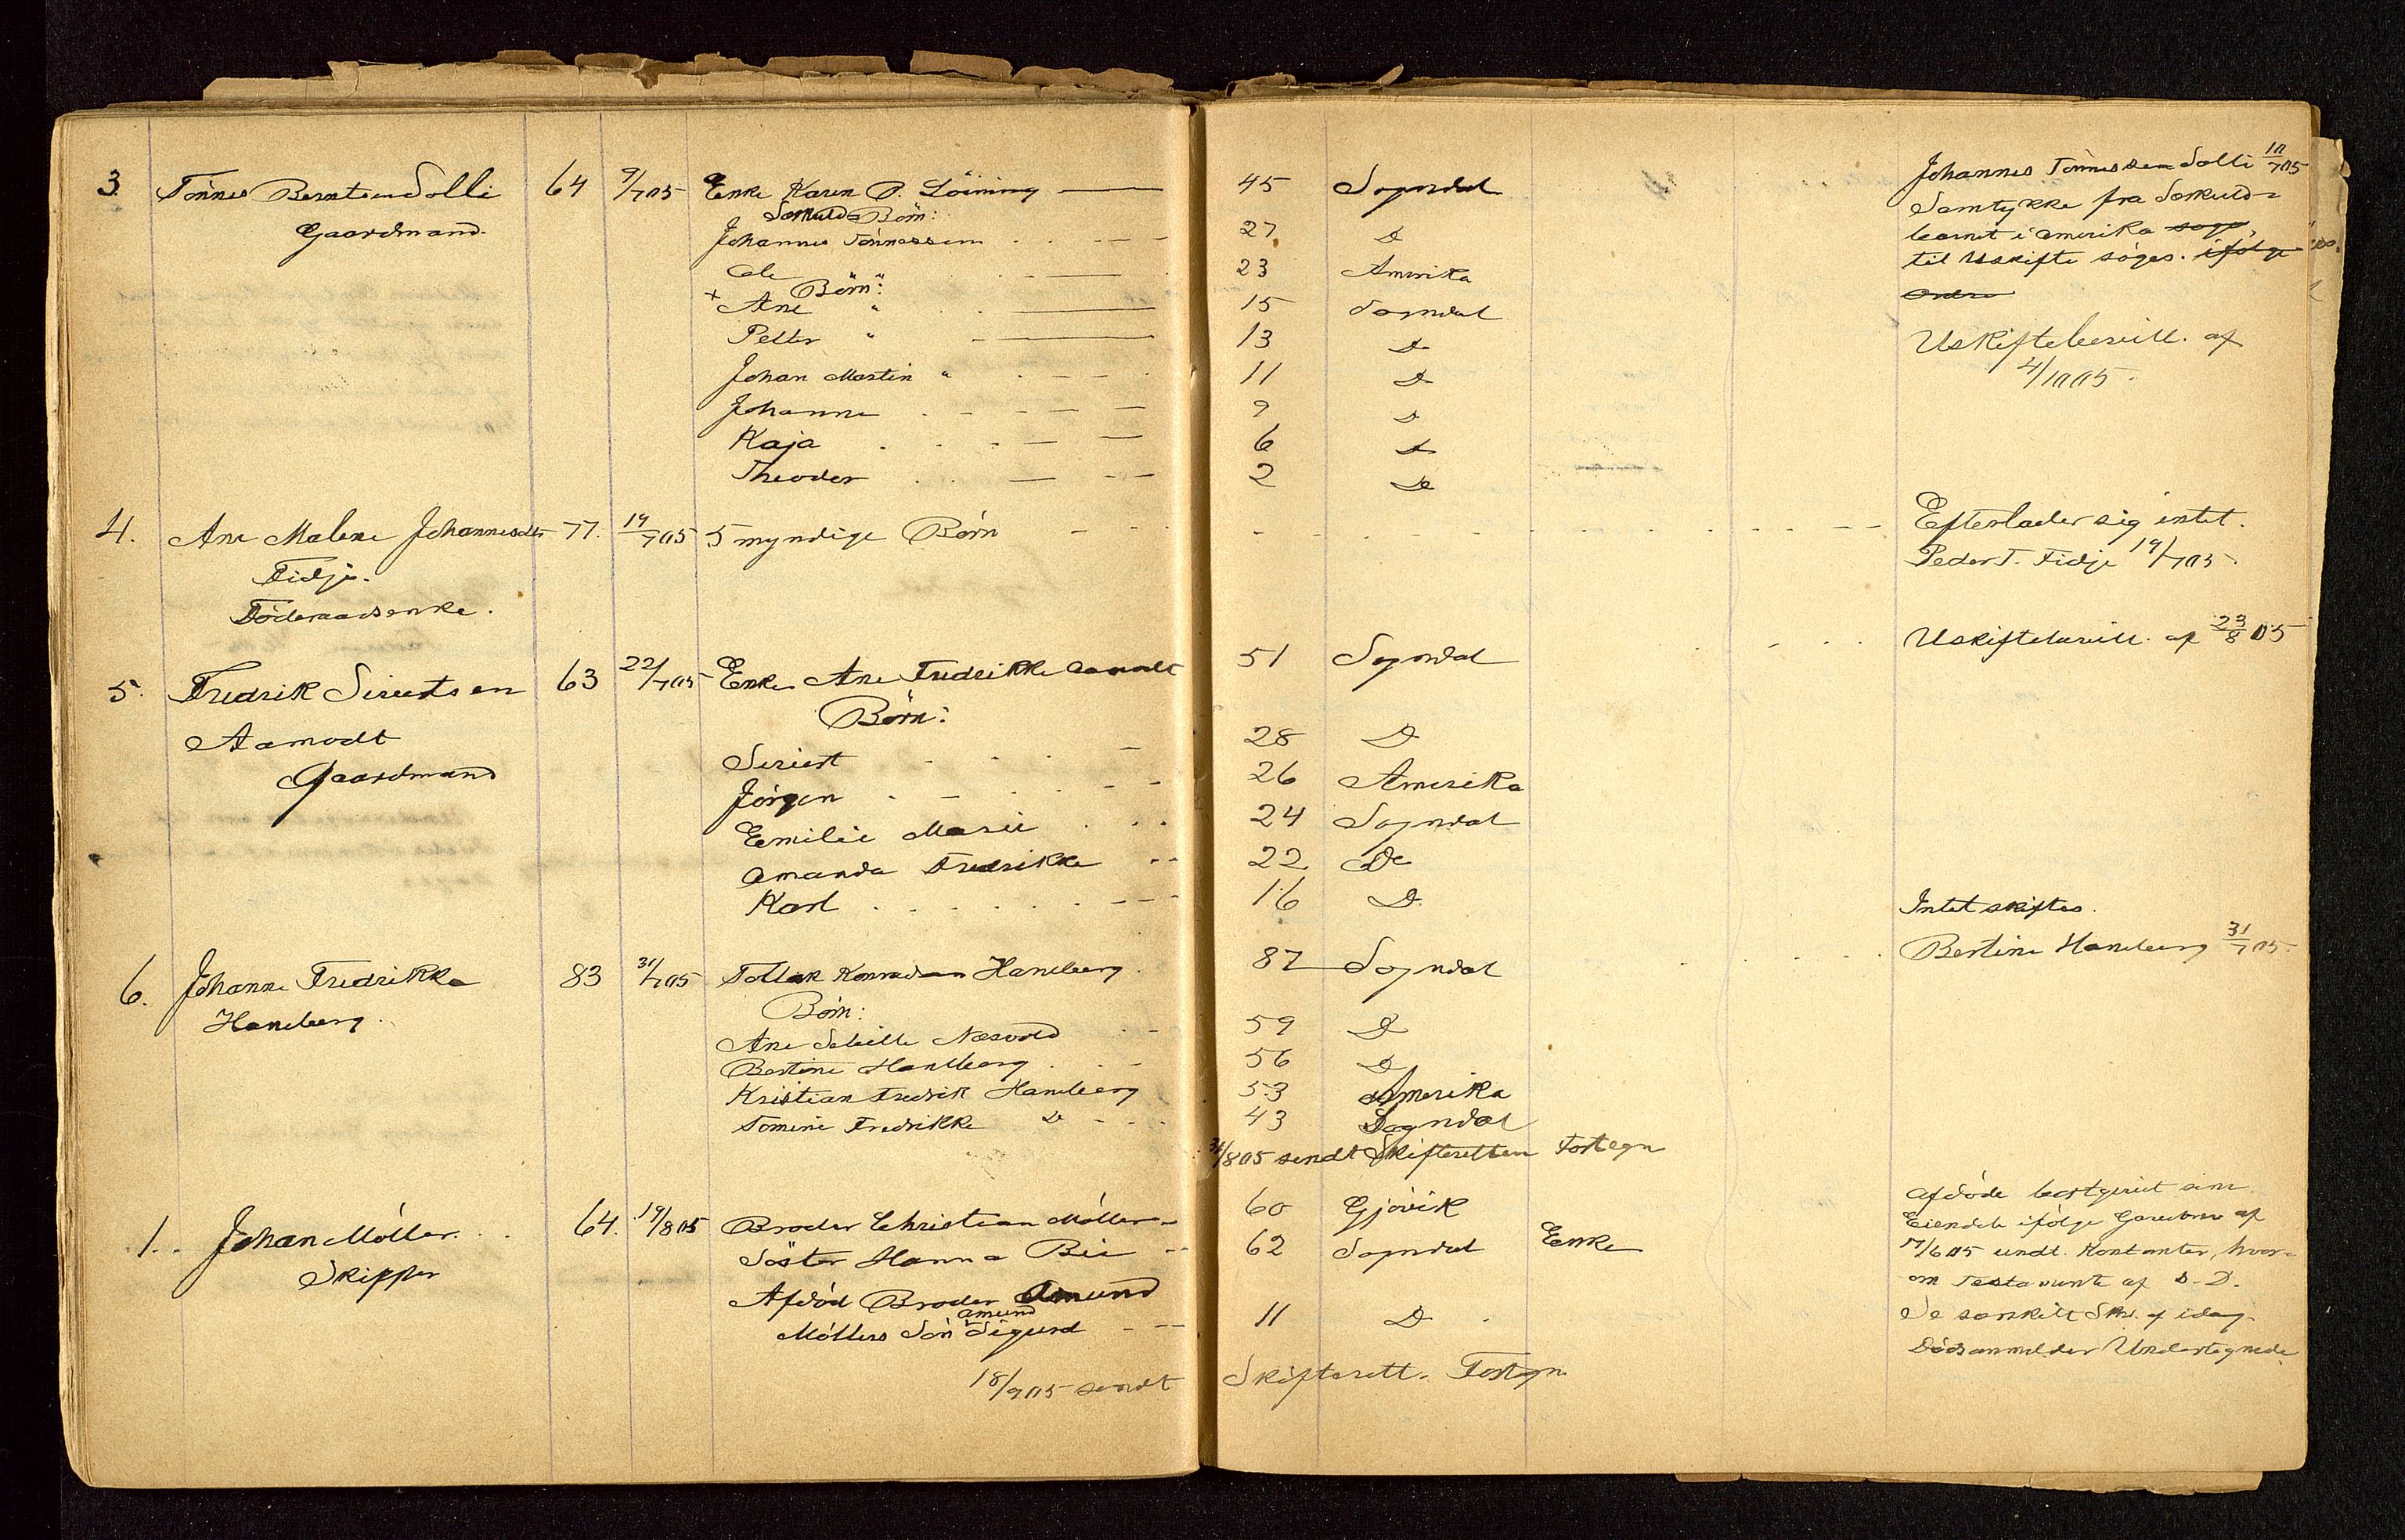 3. Tönnes Berntsen Solli 64 9/7 05 Enke Karen P. Löining 45 Sogndal Johannes Tönnessen Solli 10/7 05
Gaardmand. Særkuld Börn: Samtykke fra Særkuld-
Johannes Tönnessen 27 D barnet i Amerika
Ole " " 23 Amerika til Uskifte söges. ifölge
Börn: Ordre
x Ane " 15 Sogndal
Petter " 13 D Uskiftebevill. af
Johan Martin " 11 D 4/10 05.
Johanne 9 D
Kaja 6 D
Theodor 2 Do
4. Ane Malene Johannesdtr 77. 19/7 05 5 myndige Börn Efterlader sig intet.
Fidje. Peder T. Fidje 19/7 05.
Föderaadsenke.
5. Fredrik Sivertsen 63 22/7 05 Enke Ane Fredrikke Aamodt 51 Sogndal Uskiftebevill. af 23/8 05
Aamodt Börn:
Gaardmand Sivert 28 D
Jörgen 26 Amerika
Emilie Marie 24 Sogndal
Amanda Fredrikke 22 Do
Karl 16 D
Intet skiftes.
6. Johanne Fredrikke 83 31/7 05 Tollak Konradsen Haneberg. 87 Sogndal Bertine Haneberg 31/7 05
Haneberg. Börn:
Ane Sebille Næsvold 59 D
Bertine Haneberg 56 D
Kristian Fredrik Haneberg 53 Amerika
Tomine Fredrikke Do 43 Sogndal
31/8 05 sendt Skifteretten Fortegn
1. Johan Möller. 64. 19/8 05 Broder Christian Möller 60 Gjövik Afdöde bortgivet sine
Skipper Söster Hanna Bie 62 Sogndal Enke Eiendele ifölge Gavebrev af
Afdöd Broder Amund 17/6 05 undt. Kontanter, hvor-
Amund om Testamente af S. D.
Möllers Sön Sigurd 11 D Se særskilt Skr. af idag.
Dödsanmelder Undertegnede
18/9 05 sendt Skifterett. Fortegn.